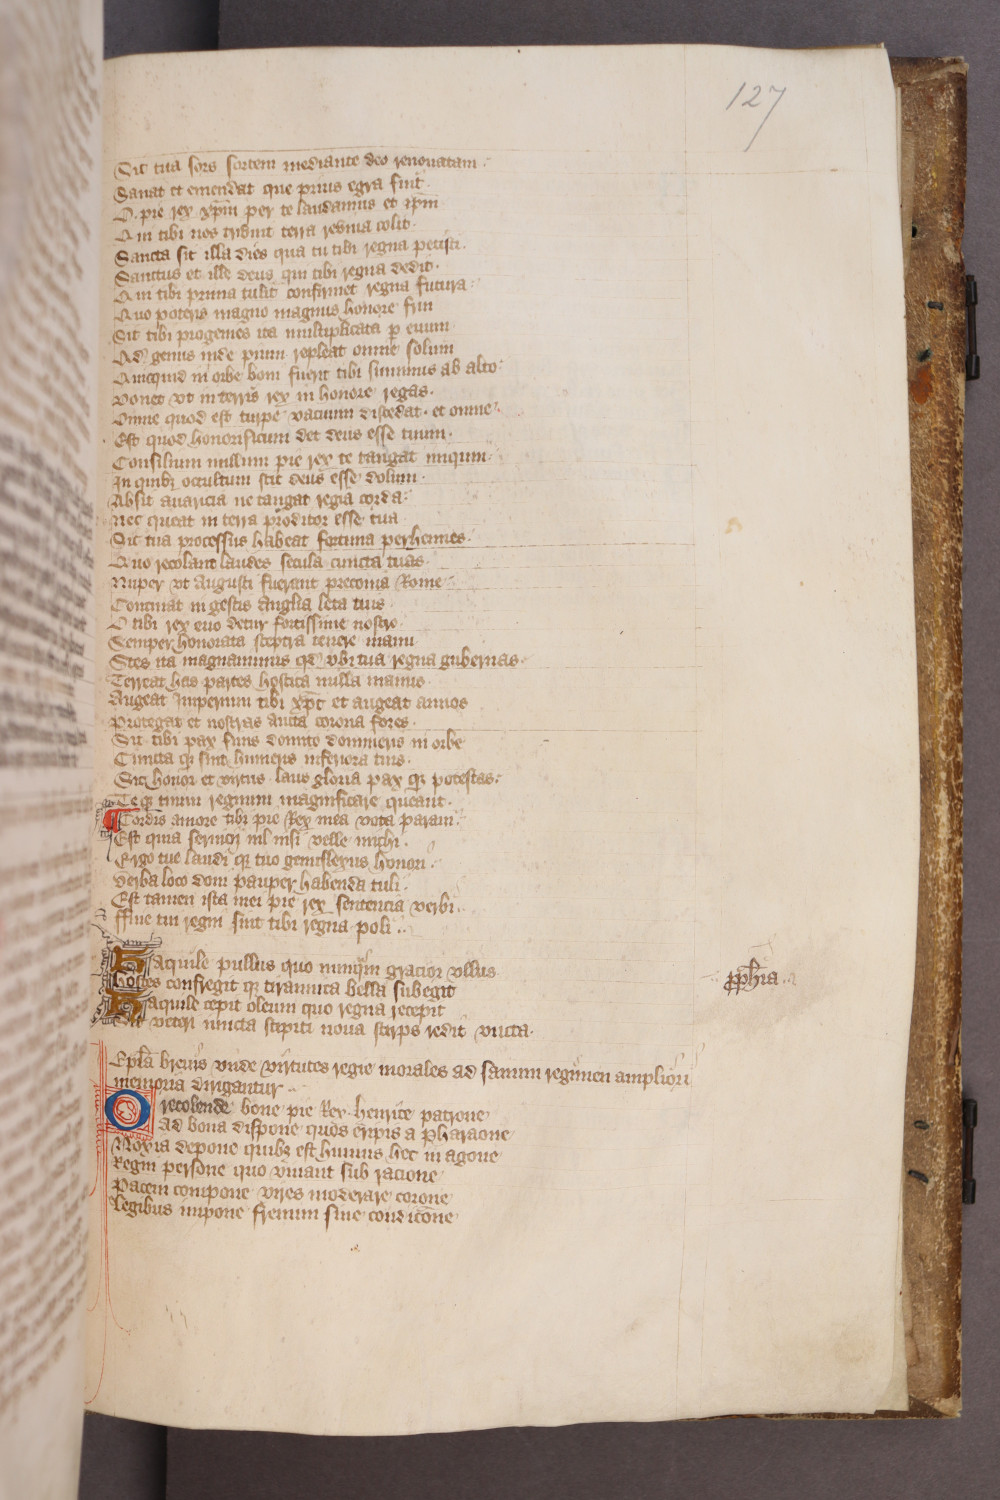 127
Sit tua sors sortem mediante deo renouatam
Sanat et emendat que prius egra fuit
O pie rex xpm per te laudamus et ipm
Qui tibi nos tribuit terra reviua colit
Sancta sit illa dies qua tu tibi regna petisti
Sanctus et ille deus qui tibi regna dedit
Qui tibi prima tulit confirmet regna futura
Quo poteris magno magnus honore frui
Sit tibi progenies ita multiplicata p euum
Ad genus inde pium repleat omne solum
Quicquid in orbe boni fuerit tibi summus ab alto
Donet vt in terris rex in honore regas
Omne quod est turpe vacuum discedat et omne
Est quod honorificum det deus esse tuum
Consilium nullum pie rex te tangat iniquum
In quibz occultum scit deus esse dolum
Absit auaricia ne tangat regia corda
Nec queat in terra proditor esse tua
Sic tua processus habeat fortuna perhennes
Quo recolant laudes secula cuncta tuas
Nuper vt Augusti fuerant preconia Rome
Concinat in gestis Anglia leta tuis
O tibi rex euo detur fortissime nostro
Semper honorata sceptra tenere manu
Stes ita magnanimus qd vbi tua regna gubernas
Terreat has partes hostica nulla manus
Augeat Imperium tibi xpc et augeat annos
Protegat et nostras aucta corona fores
Sit tibi pax finis domito domineris in orbe
Cuncta qz sint humeris inferiora tuis
Sit honor et virtus laus gloria pax qz potestas
Te qz tuum regnum magnificare queant
Cordis amore tibi pie Rex mea vota paraui
Est quia seruicij nil nisi velle michi
Ergo tue laudi qz tuo genuflexus honori
Verba loco doni pauper habenda tuli
Est tamen ista mei pie rex sentencia verbi
ffine tui regni sint tibi regna poli
H aquile pullus quo nunqm gracior vllus
Hostes confregit qz tirannica bella subegit
H aquile cepit oleum quo regna recepit
Sic veteri iuncta stipiti noua stirps redit vncta
pphia
Epla breuis vnde virtutes regie morales ad sanum regimen ampliori
memoria dirigantur
O recolende bone pie Rex henrice patrone
Ad bona dispone quos eripis a Pharaone
Noxia depone quibz est humus hec in agone
Regni persone quo viuant sub racione
Pacem compone vires moderare corone
Legibus impone frenum sine condicone